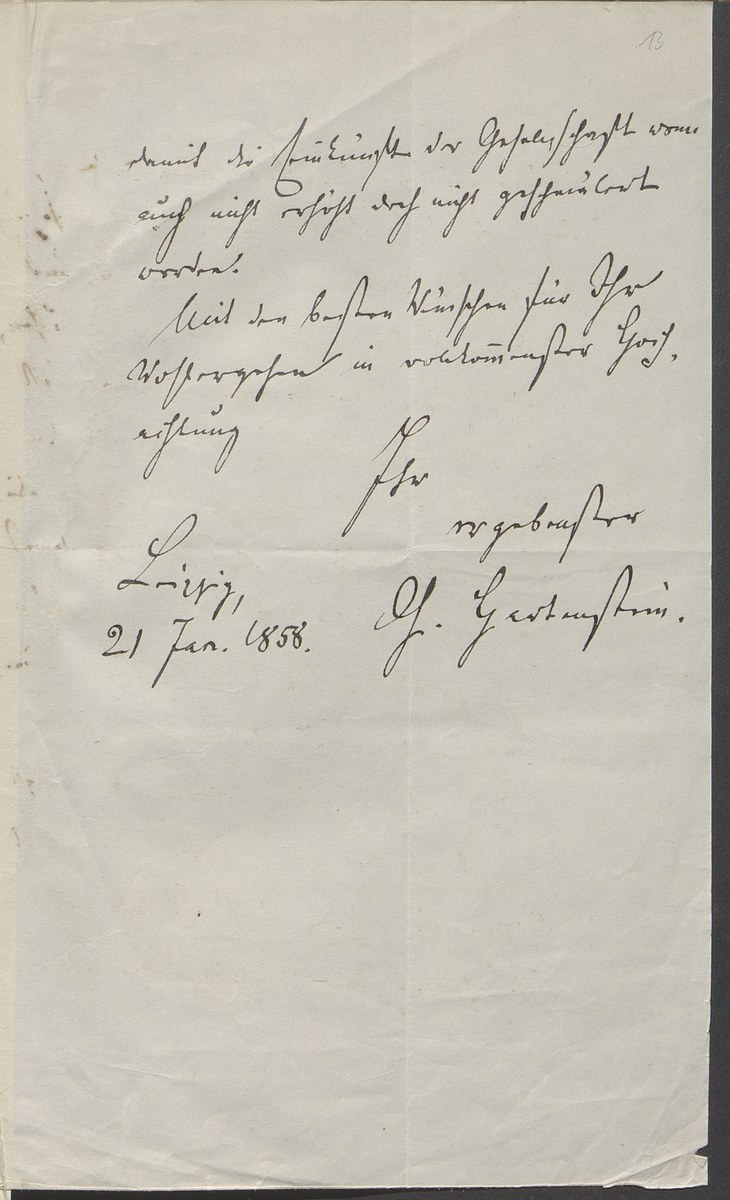 13
damit die Einkünfte der Gesellschaft wenn
auch nicht erhöht doch nicht geschmälert
werden.
Mit den besten Wünschen für Ihr
Wohlergehen in vollkommenster Hoch-
achtung
Ihr
ergebenster
Leipzig,
21 Jan. 1858.
Hartenstein.